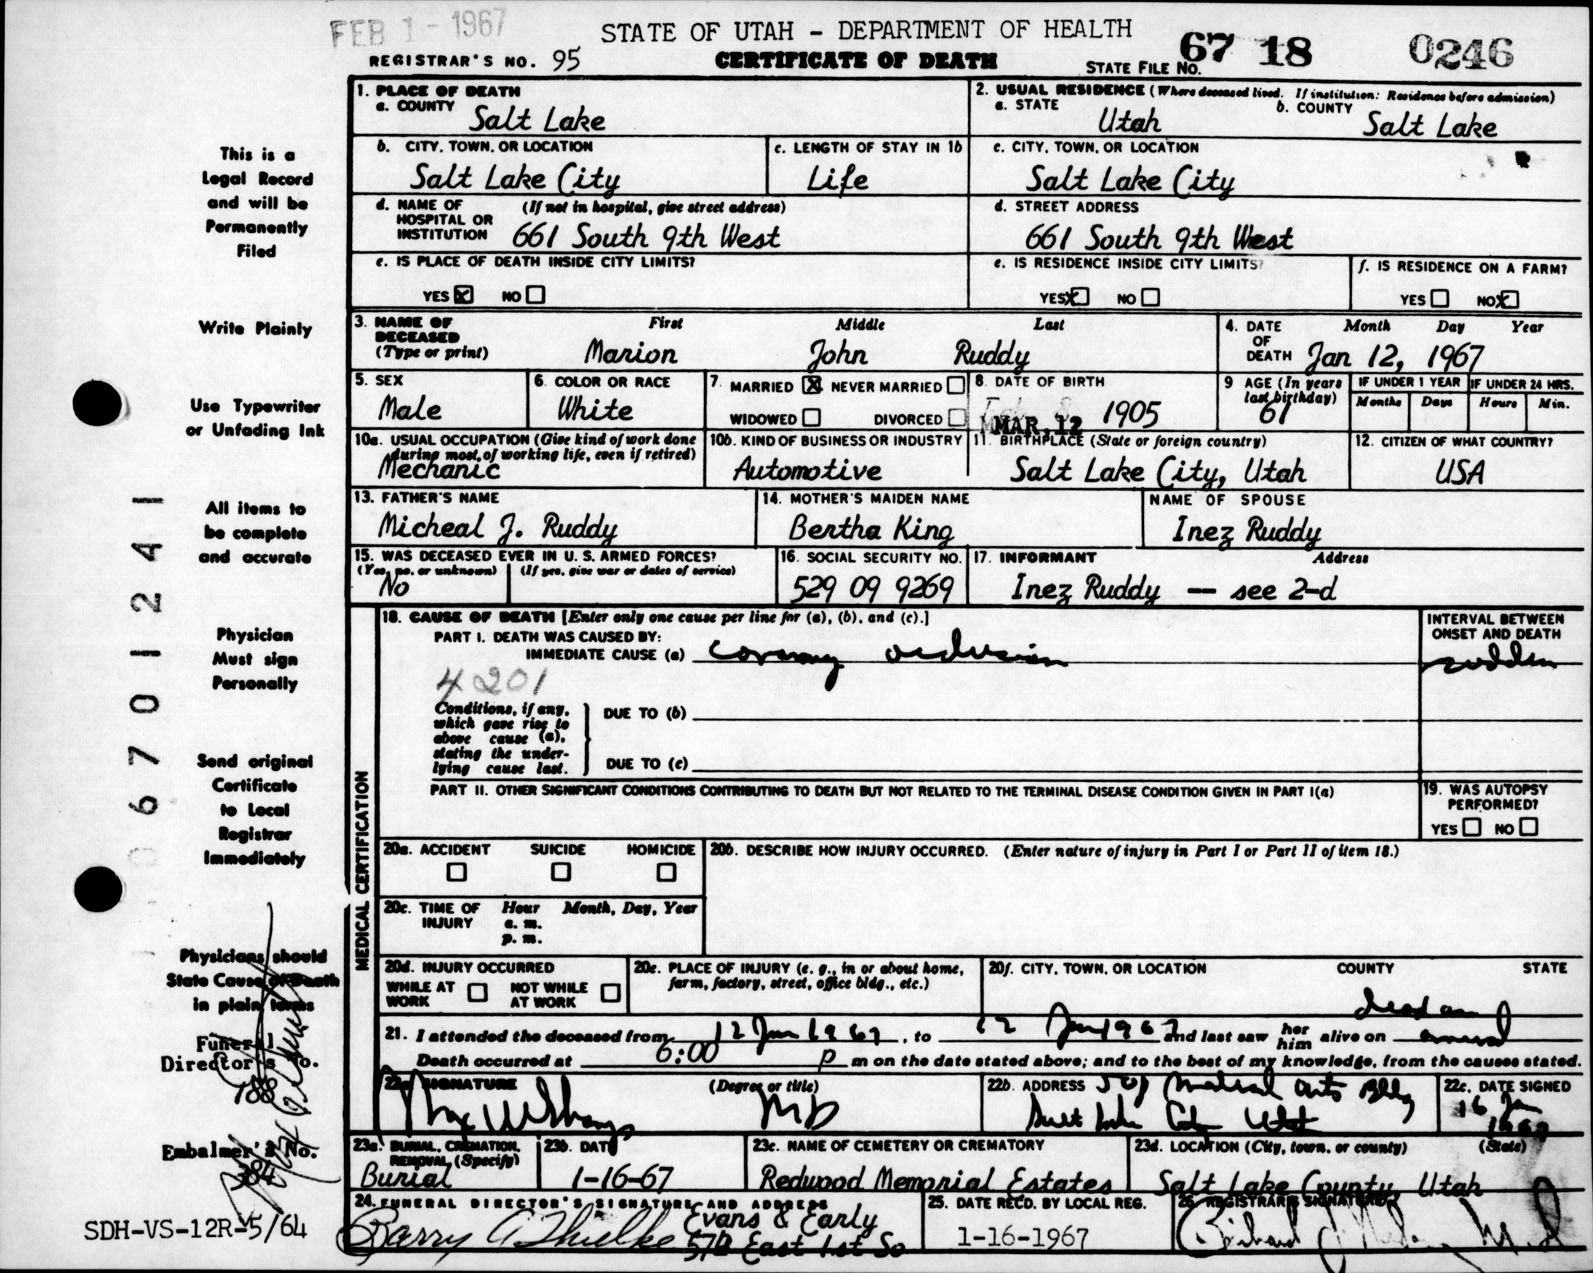 FEB 1 - 1967
STATE OF UTAH - DEPARTMENT OF HEALTH
CERTIFICATE OF DEATH
REGISTRAR'S NO. 95
STATE FILE NO. 67 18 0246
1. PLACE OF DEATH
a. COUNTY
Salt Lake
2. USUAL RESIDENCE (Where deceased lived. If institution: Residence before admission)
a. STATE
Utah
b. COUNTY
Salt Lake
b. CITY, TOWN, OR LOCATION
Salt Lake City
c. LENGTH OF STAY IN 1b
Life
c. CITY, TOWN, OR LOCATION
Salt Lake City
d. NAME OF HOSPITAL OR INSTITUTION
(If not in hospital, give street address)
661 South 9th West
d. STREET ADDRESS
661 South 9th West
e. IS PLACE OF DEATH INSIDE CITY LIMITS?
YES X NO
e. IS RESIDENCE INSIDE CITY LIMITS?
YES X NO
f. IS RESIDENCE ON A FARM?
YES NO X
3. NAME OF DECEASED
(Type or print)
First Middle Last
Marion John Ruddy
4. DATE OF DEATH
Month Day Year
Jan 12, 1967
5. SEX
Male
6. COLOR OR RACE
White
7. MARRIED X NEVER MARRIED
WIDOWED DIVORCED
8. DATE OF BIRTH
MAR. 12 1905
9 AGE (In years last birthday)
61
IF UNDER 1 YEAR
Months Days
IF UNDER 24 HRS.
Hours Min.
10a. USUAL OCCUPATION (Give kind of work done during most of working life, even if retired)
Mechanic
10b. KIND OF BUSINESS OR INDUSTRY
Automotive
11. BIRTHPLACE (State or foreign country)
Salt Lake City, Utah
12. CITIZEN OF WHAT COUNTRY?
USA
13. FATHER'S NAME
Micheal J. Ruddy
14. MOTHER'S MAIDEN NAME
Bertha King
NAME OF SPOUSE
Inez Ruddy
15. WAS DECEASED EVER IN U. S. ARMED FORCES?
(Yes, no, or unknown) (If yes, give war or dates of service)
No
16. SOCIAL SECURITY NO.
529 09 9269
17. INFORMANT Address
Inez Ruddy — see 2-d
MEDICAL CERTIFICATION
18. CAUSE OF DEATH [Enter only one cause per line for (a), (b), and (c).]
PART I. DEATH WAS CAUSED BY:
IMMEDIATE CAUSE (a) coronary occlusion
INTERVAL BETWEEN ONSET AND DEATH
sudden
4201
Conditions, if any, which gave rise to above cause (a), stating the underlying cause last.
DUE TO (b)
DUE TO (c)
PART II. OTHER SIGNIFICANT CONDITIONS CONTRIBUTING TO DEATH BUT NOT RELATED TO THE TERMINAL DISEASE CONDITION GIVEN IN PART I(a)
19. WAS AUTOPSY PERFORMED?
YES NO
20a. ACCIDENT SUICIDE HOMICIDE
20b. DESCRIBE HOW INJURY OCCURRED. (Enter nature of injury in Part I or Part II of item 18.)
20c. TIME OF INJURY
Hour Month, Day, Year
a. m.
p. m.
20d. INJURY OCCURRED
WHILE AT WORK NOT WHILE AT WORK
20e. PLACE OF INJURY (e. g., in or about home, farm, factory, street, office bldg., etc.)
20f. CITY, TOWN, OR LOCATION COUNTY STATE
21. I attended the deceased from 12 Jan 1967, to 12 Jan 1967 and last saw her him alive on dead on arrival
Death occurred at 6:00 p m on the date stated above; and to the best of my knowledge, from the causes stated.
22a. SIGNATURE (Degree or title)
MD
22b. ADDRESS
Medical Arts Bldg
Salt Lake City Utah
22c. DATE SIGNED
16 Jan 1967
23a. BURIAL, CREMATION, REMOVAL (Specify)
Burial
23b. DATE
1-16-67
23c. NAME OF CEMETERY OR CREMATORY
Redwood Memorial Estates
23d. LOCATION (City, town, or county) (State)
Salt Lake County, Utah
24. FUNERAL DIRECTOR'S SIGNATURE AND ADDRESS
Evans & Early
574 East 1st So
25. DATE RECD. BY LOCAL REG.
1-16-1967
26. REGISTRAR'S SIGNATURE
This is a
Legal Record
and will be
Permanently
Filed
Write Plainly
Use Typewriter
or Unfading Ink
All items to
be complete
and accurate
Physician
Must sign
Personally
Send original
Certificate
to Local
Registrar
Immediately
Physicians should
State Cause of Death
in plain terms
Funeral
Director's No.
788
Embalmer's No.
384
SDH-VS-12R-5/64
0 6 7 0 1 2 4 1